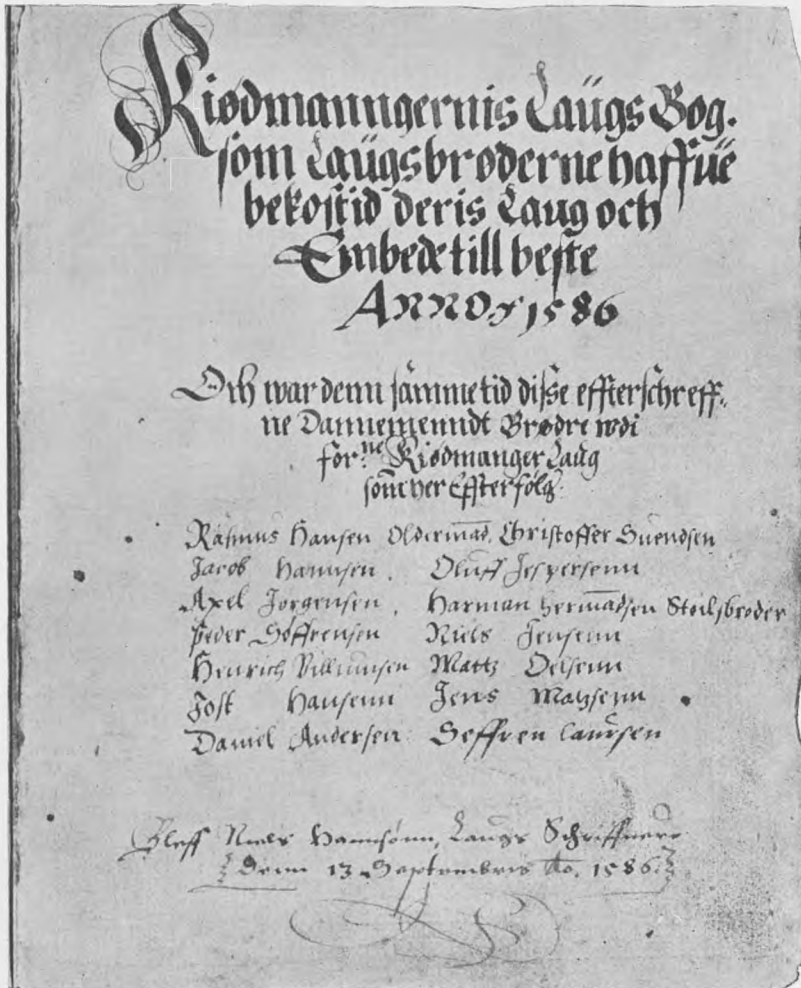 Kiødmanngernis Laugs Bog.
som Laugsbrøderne haffue
bekostid deris Laug och
Embede till beste
ANNO 1586
Och war denn samme tid disse effterschreff-
ne Dannemenndt Brødre wdi
forne Kiødmanger Laug
som her Effterfølg.
Rasmus Hansen Oldermad. Christoffer Suendsen
Jacob Hannsen. Oluff Jespersenn
Axel Jorgensen. Harman Hermadsen Stoilsbroder
Peder Søffrensen Niels Jensenn
Henrich Villumsen Mattz Oelsenn
Jost Hansenn Jens Matzsenn
Daniel Andersen Seffren Laursen
Bleff Niels Hannsønn, Laugs Schriffuere
Denn 13 Septembris Ao. 1586.